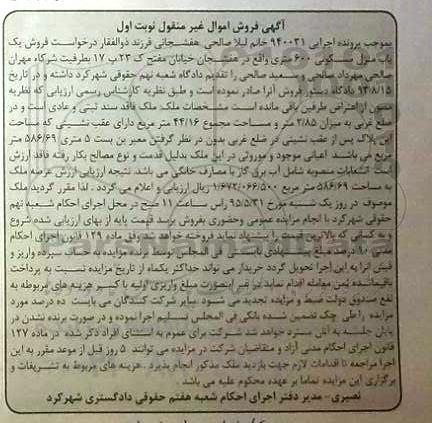 آگهی فروش اموال غیر منقول نوبت اول
بموجب پرونده اجرایی ۹۴۰۰۳۱ خانم لیلا صالحی هفشجانی فرزند ذوالفقار درخواست فروش یک
باب منزل مسکونی ۶۰۰ متری واقع در هفشجان خیابان مفتح ک ۲۳ پ ۱۷ بطرفیت شرکاء مهران
صالحی مهرداد صالحی و سعید صالحی را تقدیم دادگاه شعبه نهم حقوقی شهرکرد داشته و در تاریخ
۹۳/۸/۱۵ دادگاه دستور فروش آنرا صادر نموده است و طبق نظریه کارشناس رسمی ارزیابی که نظریه
مصون از اعتراض طرفین باقی مانده است مشخصات ملک: ملک فاقد سند ثبتی و عادی است و در
ضلع غربی به میزان ۲/۸۵ متر و مساحت مجموع ۴۴/۱۶ متر مربع دارای عقب نشینی که مساحت
این پلاک پس از عقب نشینی در ضلع غربی بدون در نظر گرفتن معبر بن بست ۵ متری ۵۸۶/۶۹ متر
مربع می باشد اعیانی موجود و موروثی در این ملک بدلیل قدمت و نوع مصالح بکار رفته فاقد ارزش
است انشعابات منصوبه شامل آب برق گاز با مصارف خانگی می باشد. نتیجه ارزیابی ارزش عرصه ملک
به مساحت ۵۸۶/۶۹ متر مربع ۱/۶۷۲/۰۶۶/۵۰۰ ریال ارزیابی و اعلام می گردد. لذا مقرر گردید ملک
موصوف در روز یک شنبه مورخ ۹۵/۵/۳۱ راس ساعت ۱۱ صبح در محل اجرای احکام شعبه نهم
حقوقی شهرکرد با انجام مزایده عمومی وحضوری بفروش برسد قیمت پایه از بهای ارزیابی شده شروع
و به کسانی که بالاترین قیمت را پیشنهاد نماید فروخته خواهد شد وفق ماده ۱۲۹ قانون اجرای احکام
مدنی ۱۰ درصد مبلغ پیشنهادی بایستی فی المجلس توسط برنده مزایده به حساب سپرده واریز و
فیش آنرا به این اجرا تحویل گردد خریدار می تواند حداکثر یکماه از تاریخ مزایده نسبت به پرداخت
باقیمانده ثمن معامله اقدام نماید در غیر اینصورت مبلغ واریزی اولیه با کسر هزینه های مربوطه به
نفع صندوق دولت ضبط و مزایده تجدید می شود سایر شرکت کنندگان می بایست ده درصد مورد
مزایده را طی چک تضمین شده بانکی فی المجلس تسلیم اجرا نموده و در صورت برنده نشدن در
پایان جلسه به آنان مسترد خواهد شد شرکت برای عموم به استثنای افراد ذکر شده در ماده ۱۲۷
قانون اجرای احکام مدنی آزاد و متقاضیان شرکت در مزایده می توانند ۵ روز قبل از موعد مقرر به این
اجرا مراجعه تا اقدامات لازم جهت بازدید ملک مذکور انجام پذیرد. هزینه های مربوط به تشریفات و
برگزاری این مزایده تماما بر عهده محکوم علیه می باشد.
نصیری - مدیر دفتر اجرای احکام شعبه هفتم حقوقی دادگستری شهرکرد